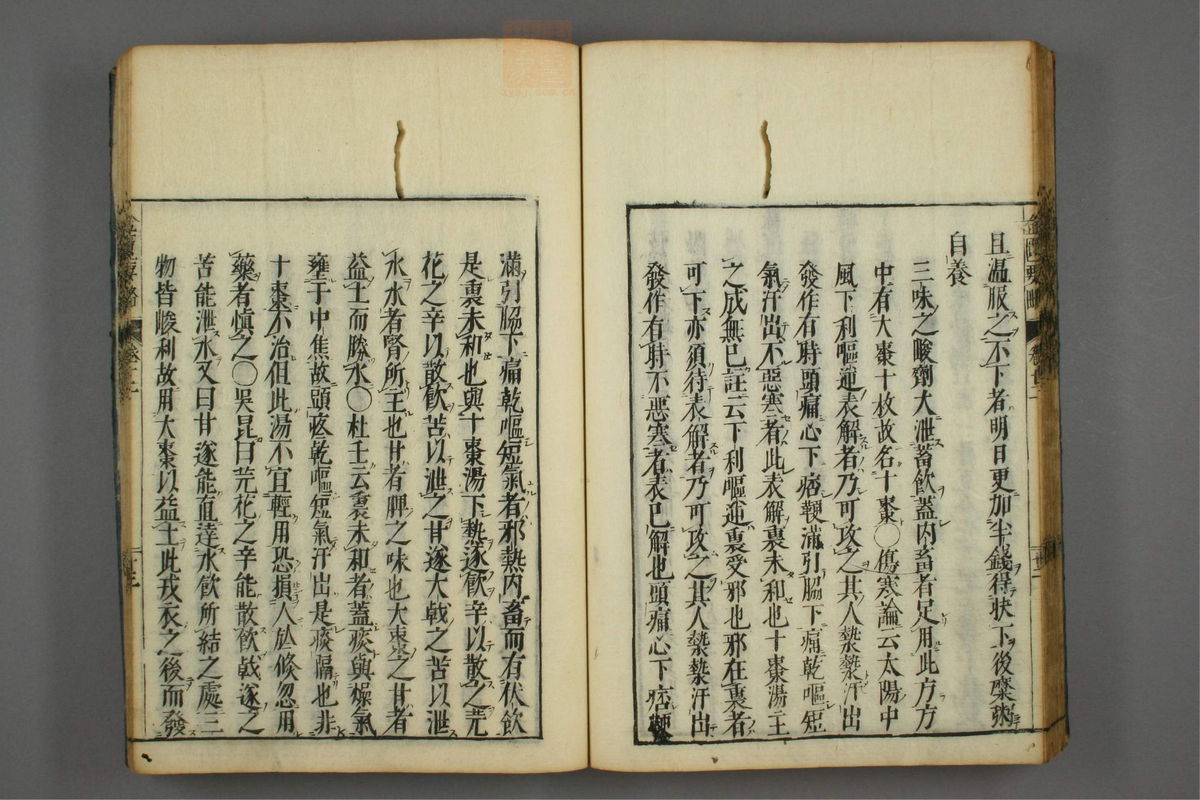 且温服之不下者明日更加半錢得快下後糜粥
自養
三味之峻劑大泄蓄飲蓋内畜者足用此方方
中有大棗十枚故名十棗〇傷寒論云太陽中
風下利嘔逆表解者乃可攻之其人漐漐汗出
發作有時頭痛心下痞鞕滿引脇下痛乾嘔短
氣汗出不惡寒者此表解裏未和也十棗湯主
之成無已註云下利嘔逆裏受邪也邪在裏者
可下亦須待表解者乃可攻之其人漐漐汗出
發作有時不惡寒者表已解也頭痛心下痞鞕
滿引脇下痛乾嘔短氣者邪熱内畜而有伏飲
是裏未和也與十棗湯下熱逐飲辛以散之芫
花之辛以散飲苦以泄之甘遂大戟之苦以泄
水水者腎所主也甘者脾之味也大棗之甘者
益土而勝水〇杜壬云裏未和者蓋痰與燥氣
壅于中焦故頭疼乾嘔短氣汗出是痰隔也非
十棗不治但此湯不宜輕用恐損人於倏忽用
藥者愼之〇吳昆曰芫花之辛能散飲戟遂之
苦能泄水又曰甘遂能直達水飲所結之處三
物皆峻利故用大棗以益土此戎衣之後而發